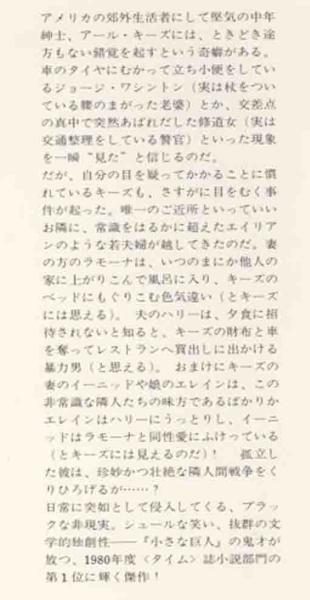 アメリカの郊外生活者にして堅気の中年
紳士、アール・キーズには、ときどき途
方もない錯覚を起すという奇癖がある。
車のタイヤにむかって立ち小便をしてい
るジョージ・ワシントン（実は杖をつい
ている腰のまがった老婆）とか、交差点
の真中で突然あばれだした修道女（実は
交通整理をしている警官）といった現象
を一瞬“見た”と信じるのだ。
だが、自分の目を疑ってかかることに慣
れているキーズも、さすがに目をむく事
件が起った。唯一のご近所といっていい
お隣に、常識をはるかに超えたエイリア
ンのような若夫婦が越してきたのだ。妻
の方のラモーナは、いつのまにか他人の
家に上がりこんで風呂に入り、キーズの
ベッドにもぐりこむ色気違い（とキーズ
には思える）。夫のハリーは、夕食に招
待されないと知ると、キーズの財布と車
を奪ってレストランへ買出しに出かける
暴力男（と思える）。おまけにキーズの
妻のイーニッドや娘のエレインは、この
非常識な隣人たちの味方であるばかりか
エレインはハリーにうっとりし、イーニ
ッドはラモーナと同性愛にふけっている
（とキーズには見えるのだ）！　孤立し
た彼は、珍妙かつ壮絶な隣人間戦争をく
りひろげるが……？
日常に突如として侵入してくる、ブラッ
クな非現実。シュールな笑い、抜群の文
学的独創性――『小さな巨人』の鬼才が
放つ、1980年度〈タイム〉誌小説部門の
第１位に輝く傑作！